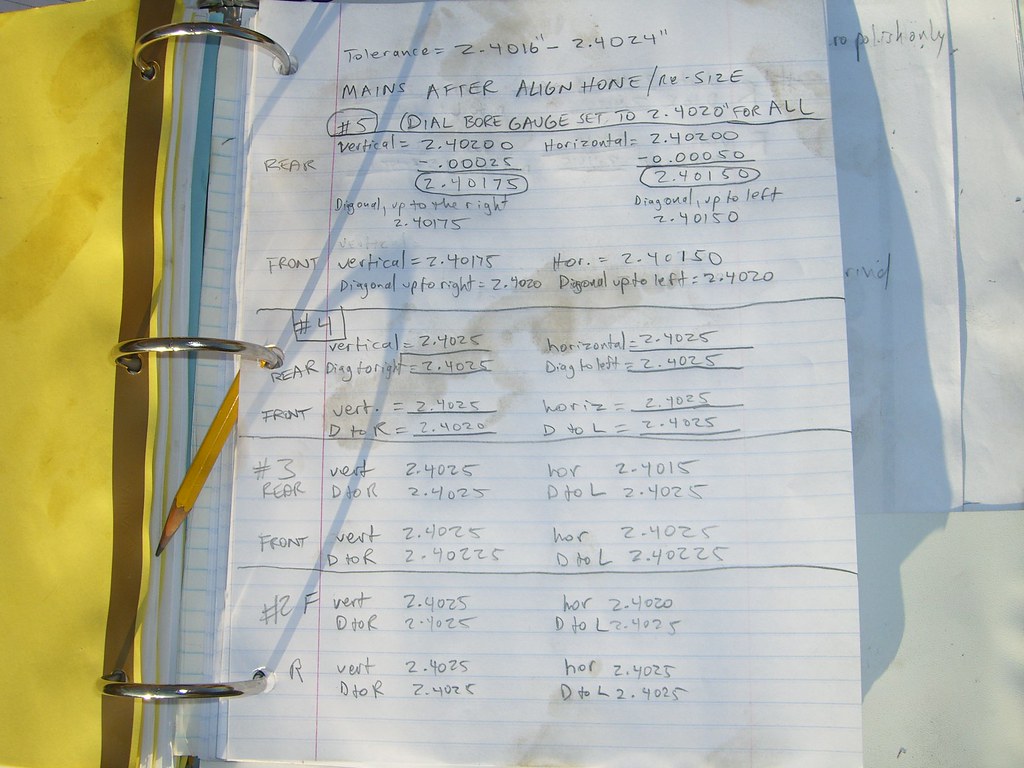 Tolerance = 2.4016" - 2.4024"
MAINS AFTER ALIGN HONE/RE-SIZE
#5 (DIAL BORE GAUGE SET TO 2.4020" FOR ALL
REAR
vertical = 2.40200 Horizontal = 2.40200
-.00025 -0.00050
2.40175 2.40150
Diagonal, up to the right Diagonal, up to left
2.40175 2.40150
FRONT vertical = 2.40175 Hor. = 2.40150
Diagonal up to right = 2.4020 Diagonal up to left = 2.4020
#4
vertical = 2.4025 horizontal = 2.4025
REAR Diag to right = 2.4025 Diag to left = 2.4025
FRONT vert. = 2.4025 horiz = 2.4025
D to R = 2.4020 D to L = 2.4025
#3 vert 2.4025 hor 2.4015
REAR D to R 2.4025 D to L 2.4025
FRONT vert 2.4025 hor 2.4025
D to R 2.40225 D to L 2.40225
#2 F vert 2.4025 hor 2.4020
D to R 2.4025 D to L 2.4025
R vert 2.4025 hor 2.4025
D to R 2.4025 D to L 2.4025
polish only